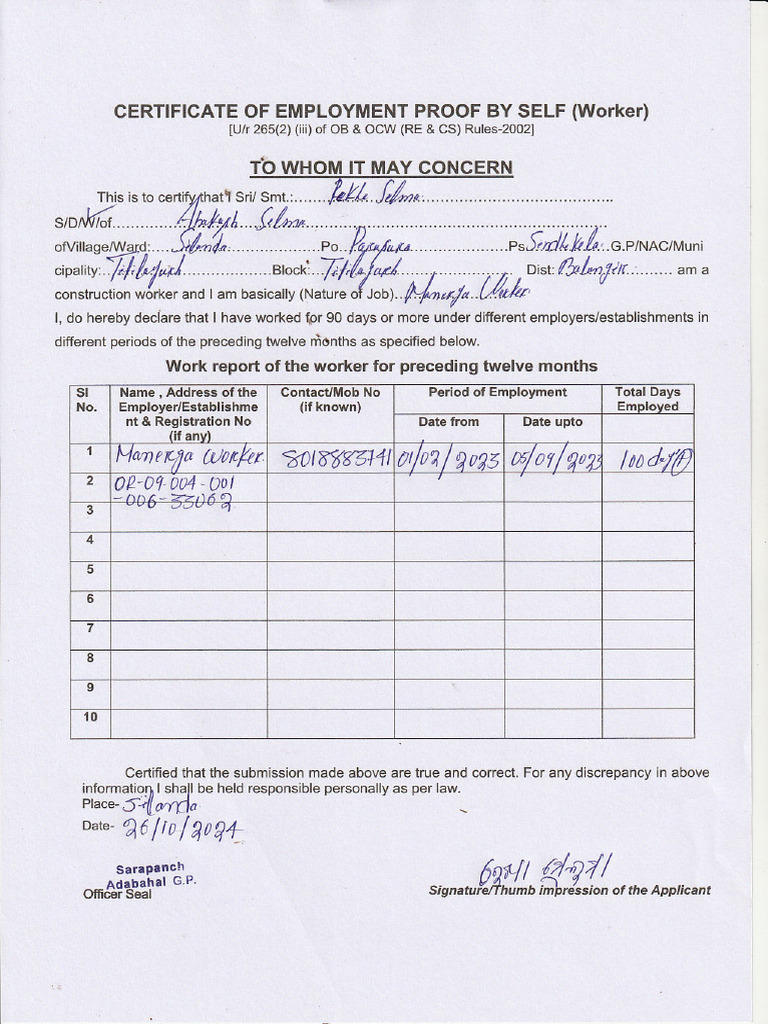 CERTIFICATE OF EMPLOYMENT PROOF BY SELF (Worker)
[U/r 265(2) (iii) of OB & OCW (RE & CS) Rules-2002]
TO WHOM IT MAY CONCERN
This is to certify that I Sri/ Smt.:.......Rekha Selma.......
S/D/W/of.......Selma.......
ofVillage/Ward:.......Silanda.......Po.......Ps.Sendhekela.:G.P/NAC/Muni
cipality:.Titilagarh.......Block:.Titilagarh....... Dist:.Balangir.:....... am a
construction worker and I am basically (Nature of Job)..Manerga Worker
I, do hereby declare that I have worked for 90 days or more under different employers/establishments in
different periods of the preceding twelve months as specified below.
Work report of the worker for preceding twelve months
Sl No. Name , Address of the Employer/Establishme nt & Registration No (if any) Contact/Mob No (if known) Period of Employment Total Days Employed
Date from Date upto
1 Manerga worker 8018883741 01/02/2023 05/09/2023 100 day
2 OR-09-004-001
3 -006-33062
4
5
6
7
8
9
10
Certified that the submission made above are true and correct. For any discrepancy in above
information I shall be held responsible personally as per law.
Place- Silanda
Date- 26/10/2024
Sarapanch
Adabahal G.P.
Officer Seal
Signature/Thumb impression of the Applicant